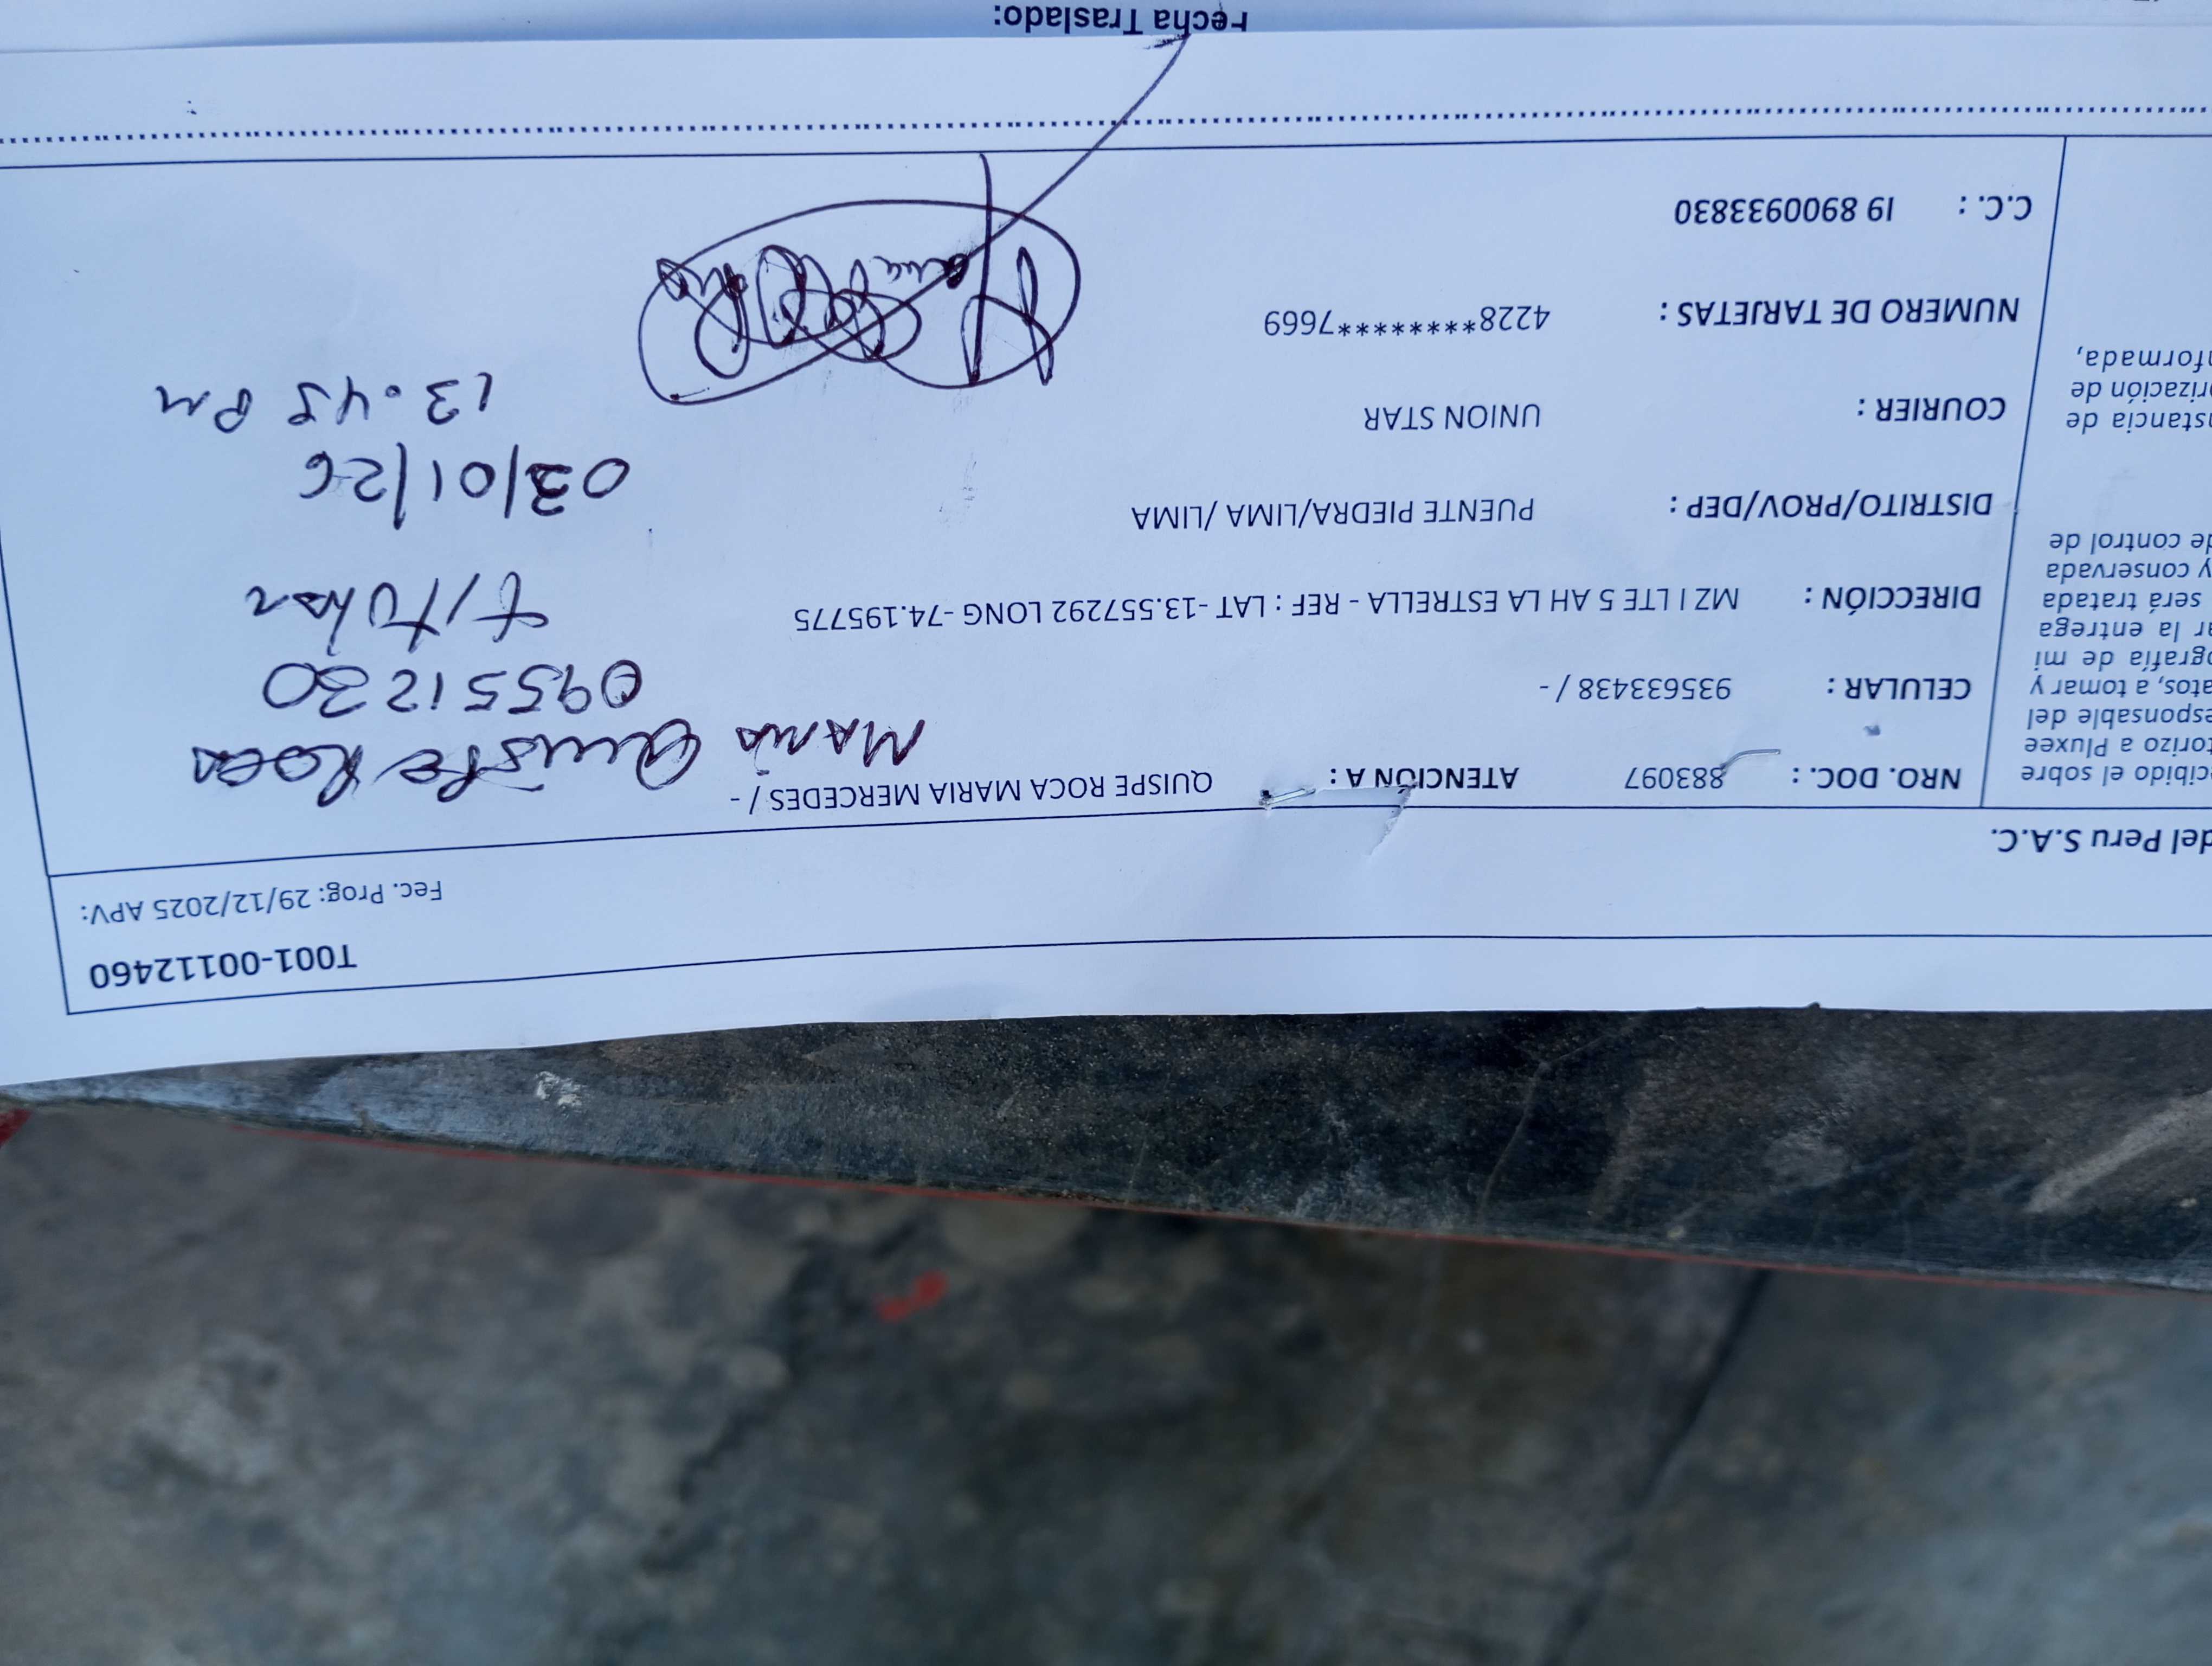 T001-00112460
Fec. Prog: 29/12/2025 APV:
del Peru S.A.C.
cibido el sobre
torizo a Pluxee
esponsable del
atos, a tomar y
ografía de mi
ar la entrega
será tratada
y conservada
de control de
nstancia de
orización de
nformada,
NRO. DOC. : 883097 ATENCIÓN A : QUISPE ROCA MARIA MERCEDES / -
CELULAR : 935633438 / -
DIRECCIÓN : MZ I LTE 5 AH LA ESTRELLA - REF : LAT -13.557292 LONG -74.195775
DISTRITO/PROV/DEP : PUENTE PIEDRA/LIMA/ /LIMA
COURIER : UNION STAR
NUMERO DE TARJETAS : 4228*********7669
C.C. : I9 8900933830
Maria Quispe Roca
09551230
t/tutar
03/01/26
13.45 PM
Fecha Traslado: